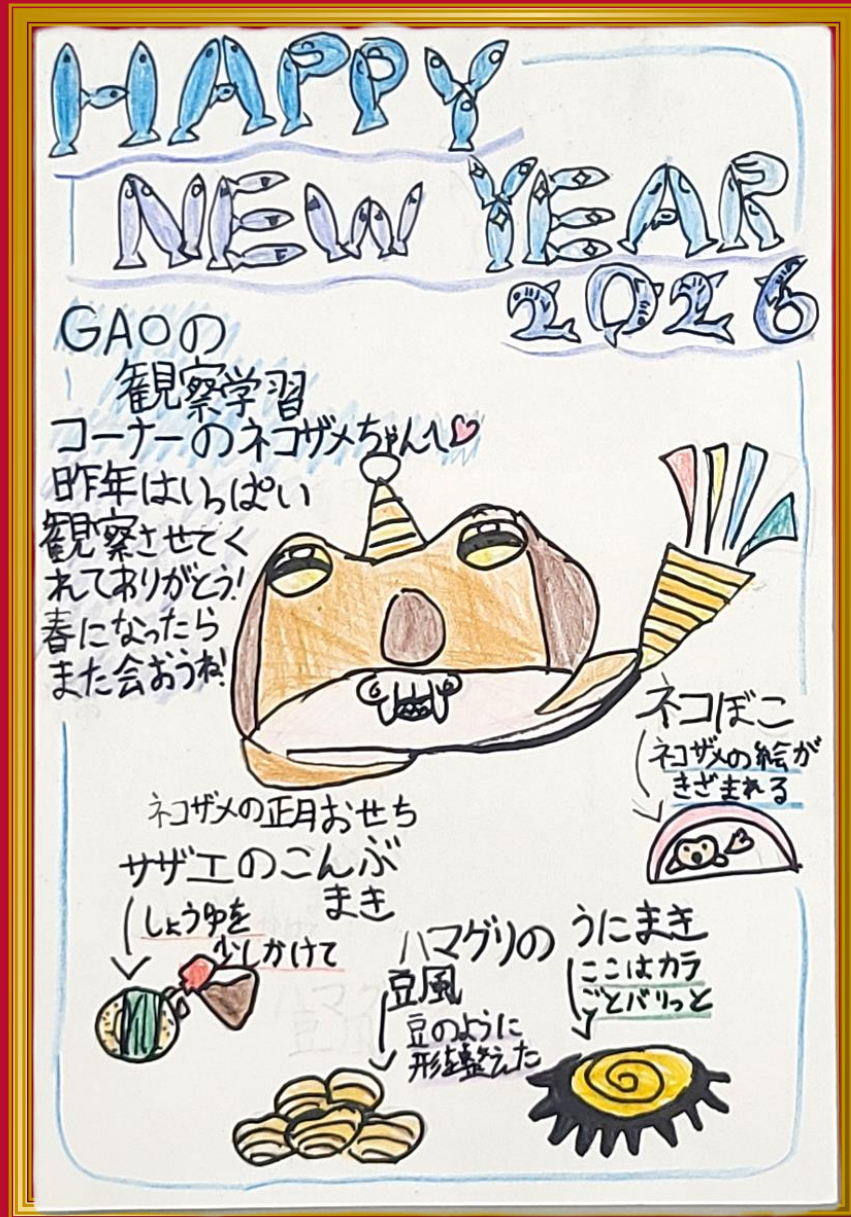 HAPPY
NEW YEAR
2026
GAOの
観察学習
コーナーのネコザメちゃんへ♡
昨年はいっぱい
観察させてく
れてありがとう!
春になったら
また会おうね!
ネコぼこ
ネコザメの絵が
きざまれる
ネコザメの正月おせち
サザエのこんぶ
まき
しょうゆを
少しかけて
ハマグリの
豆風
豆のように
形を整えた
うにまき
ここはカラ
ごとバリっと